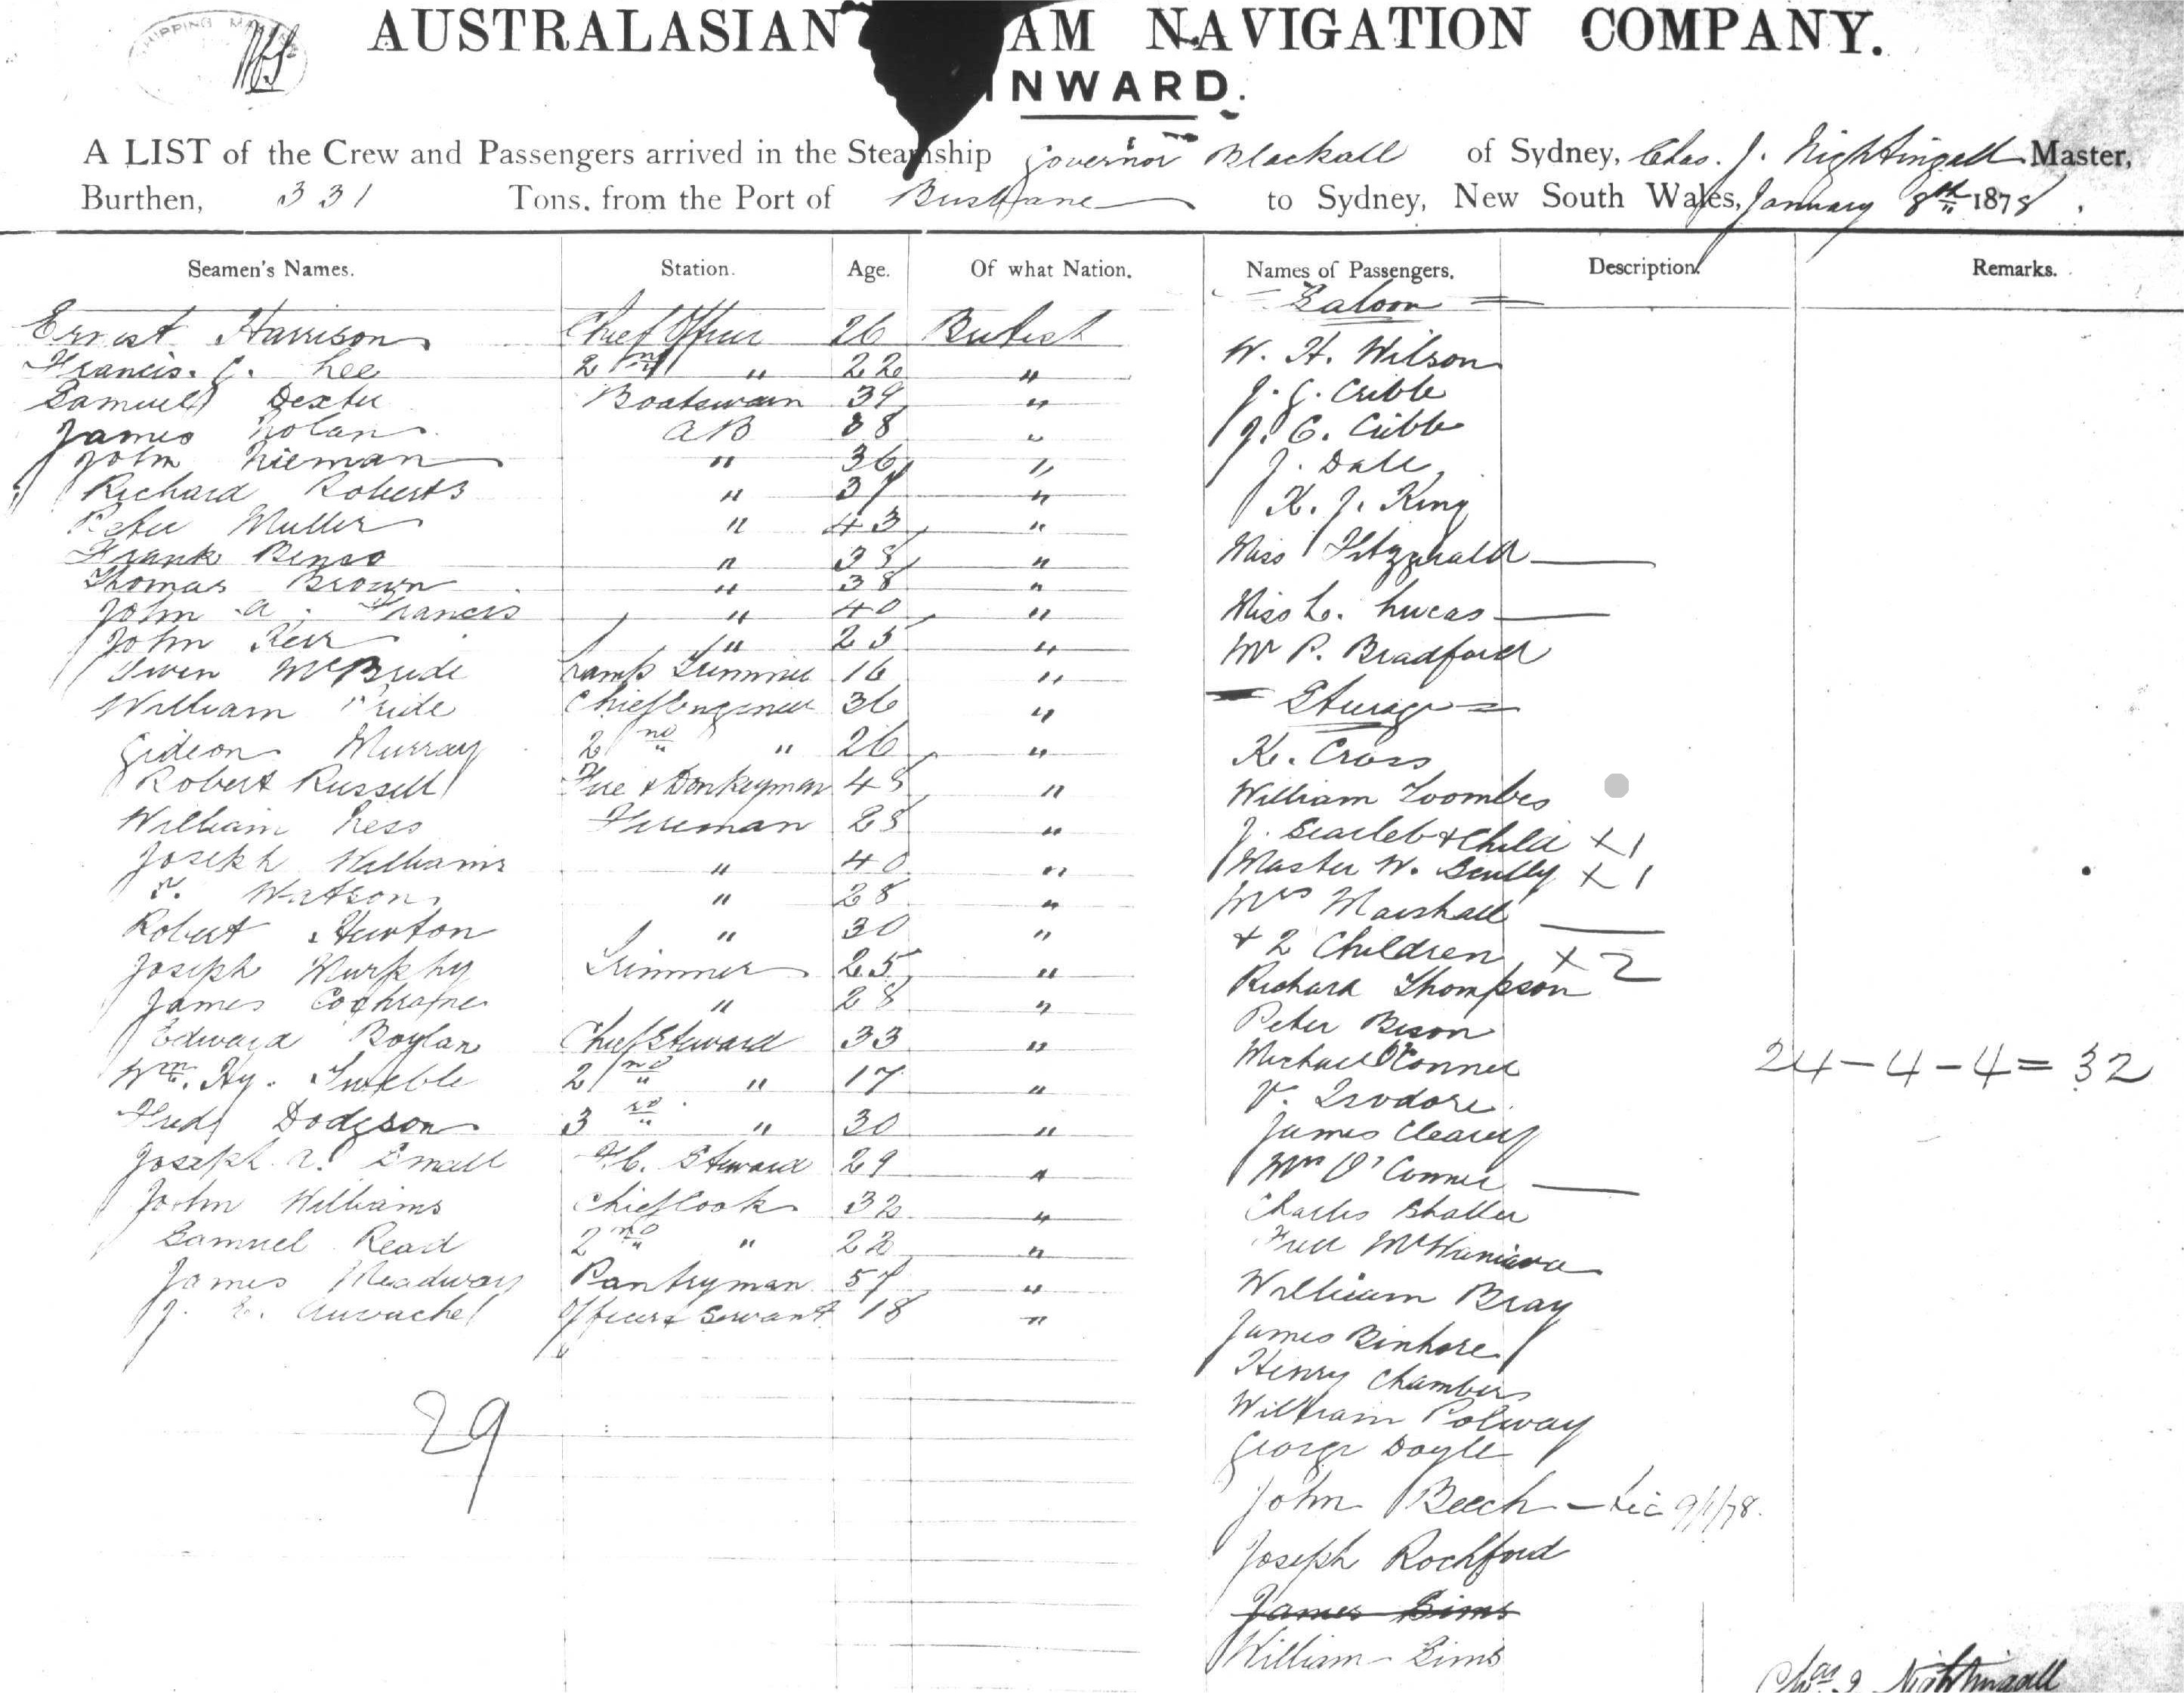 AUSTRALASIAN AM NAVIGATION COMPANY.
INWARD.
A LIST of the Crew and Passengers arrived in the Steamship Governor Blackall of Sydney, Chas. J. Nightingall Master,
Burthen, 331 Tons, from the Port of Brisbane to Sydney, New South Wales, January 8th 1878.
Seamen's Names. Station. Age. Of what Nation. Names of Passengers. Description. Remarks.
Ernest Harrison Chief Officer 26 British
Francis. J. Lee 2nd " 22 "
Samuel Dexter Boatswain 39 "
James Nolan AB 38 "
John Nieman " 36 "
Richard Roberts " 37 "
Peter Muller " 43 "
Frank " 38 "
Thomas Brown " 38 "
John A. Francis " 40 "
John Kerr " 25 "
Owen McBride Lamp Trimmer 16 "
William Pride Chief Engineer 36 "
Gideon Murray 2nd " 26 "
Robert Russell Fire & Donkeyman 48 "
William Ness Fireman 28 "
Joseph Williams " 40 "
Watson " 28 "
Robert Newton " 30 "
Joseph Murphy Trimmer 25 "
James Cochrane " 28 "
Edward Boylan Chief Steward 33 "
Wm. Hy. 2nd " 17 "
Fred Dodgson 3rd " 30 "
Joseph A. Small F.C. Steward 29 "
John Williams Chief Cook 32 "
Samuel Read 2nd " 22 "
James Meadway Pantryman 57 "
J. E. Officers Servant 18 "
29
Saloon
W. H. Wilson
J. G. Cribb
J. C. Cribb
J. Dale
K. J. King
Miss Fitzgerald
Miss L. Lucas
Mr P. Bradford
Steerage
K. Cross
William Toombes
J. Scarlet & Child X 1
Master W. Scully X 1
Mrs Marshall
+ 2 Children X 2
Richard Thompson
Peter
Michael O'Conner
V. Isodore
James Cleary
Mrs O'Conner
Charles Shaller
Fred
William Bray
James Binhore
Henry Chambers
William Polway
George Doyle
John Beech 9/1/78.
Joseph Rochford
James Sims
William Sims
24 - 4 - 4 = 32
Chas J Nightingall